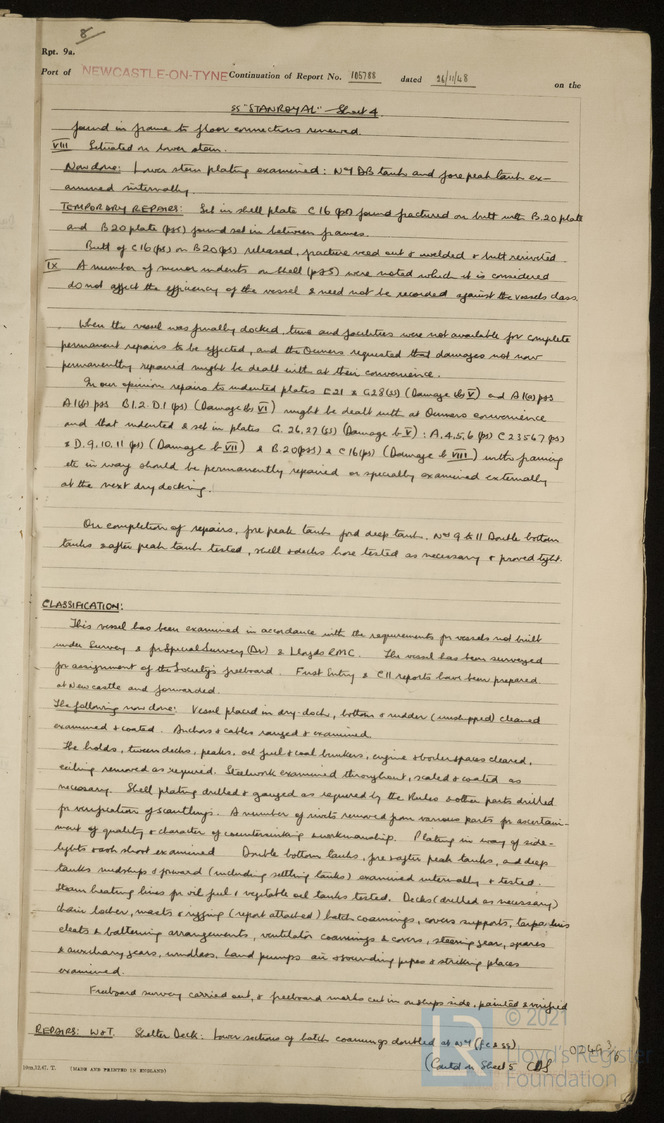 8
Rpt. 9a.
Port of NEWCASTLE-ON-TYNE Continuation of Report No. 105788 dated 26/11/48 on the
ss "STANROYAL" Sheet 4.
found in frame to floor connections renewed.
VIII Situated on lower stem.
Now done: Lower stem plating examined: No 1 DB tank and fore peak tank ex-
amined internally.
TEMPORARY REPAIRS: Set in shell plate C 16 (ps) found fractured on butt with B.20 plate
and B20 plate (ps) found set in between frames.
Butt of C16 (ps) on B20 (ps) released, fracture veed out & welded & butt reriveted
IX A number of minor indents on shell (p&s) were noted which it is considered
do not affect the efficiency of the vessel & need not be recorded against the vessels class.
When the vessel was finally docked, time and facilities were not available for complete
permanent repairs to be effected, and the Owners requested that damages not now
permanently repaired might be dealt with at their convenience.
In our opinion repairs to indented plates E21 & G28 (ss) (Damage V) and A1
A1 B1.2. D.1 (ps) (Damage VI) might be dealt with at Owners convenience
and that indented & set in plates G. 26, 27 (ss) (Damage V): A, 4, 5, 6 (ps) C 2 3 5 6 7 (ps)
& D. 9, 10, 11 (ps) (Damage VII) & B. 20 & C 16 (ps) (Damage VIII) with framing
etc in way should be permanently repaired or specially examined externally
at the next dry docking.
On completion of repairs, fore peak tank ford deep tank, Nos 9 & 11 Double bottom
tanks & after peak tank tested, shell & decks hose tested as necessary & proved tight.
CLASSIFICATION:
This vessel has been examined in accordance with the requirements for vessels not built
under Survey & for Special Survey & Lloyds RMC. The vessel has been surveyed
for assignment of the Society's freeboard. First Entry & C11 reports have been prepared
at Newcastle and forwarded.
The following now done: Vessel placed in dry-dock, bottom & rudder (unshipped) cleaned
examined & coated. Anchors & cables ranged & examined.
The holds, tween decks, peaks, oil fuel & coal bunkers, engine & boiler spaces cleared,
ceiling removed as required. Steelwork examined throughout, scaled & coated as
necessary. Shell plating drilled & gauged as required by the Rules & other parts drilled
for verification of scantlings. A number of rivets removed from various parts for ascertain-
ment of quality & character of countersinking & workmanship. Plating in way of side-
lights & ash shoot examined Double bottom tanks, fore & after peak tanks, and deep
tanks midships & forward (including settling tanks) examined internally & tested.
Steam heating lines for oil fuel & vegetable oil tanks tested. Decks (drilled as necessary)
chain locker, masts & rigging (report attached) hatch coamings, covers supports, tarpaulins
cleats & battening arrangements, ventilator coamings & covers, steering gear, spares
& auxiliary gears, windlass, hand pumps air & sounding pipes & striking places
examined.
Freeboard survey carried out, & freeboard marks cut in on ships side, painted & verified
REPAIRS: W&T. Shelter Deck: Lower sections of hatch coamings doubled at No 4 (F.E & SS)
(Contd on Sheet 5
10m,12.47. T. (MADE AND PRINTED IN ENGLAND)
LR
© 2021
Lloyd's Register
Foundation